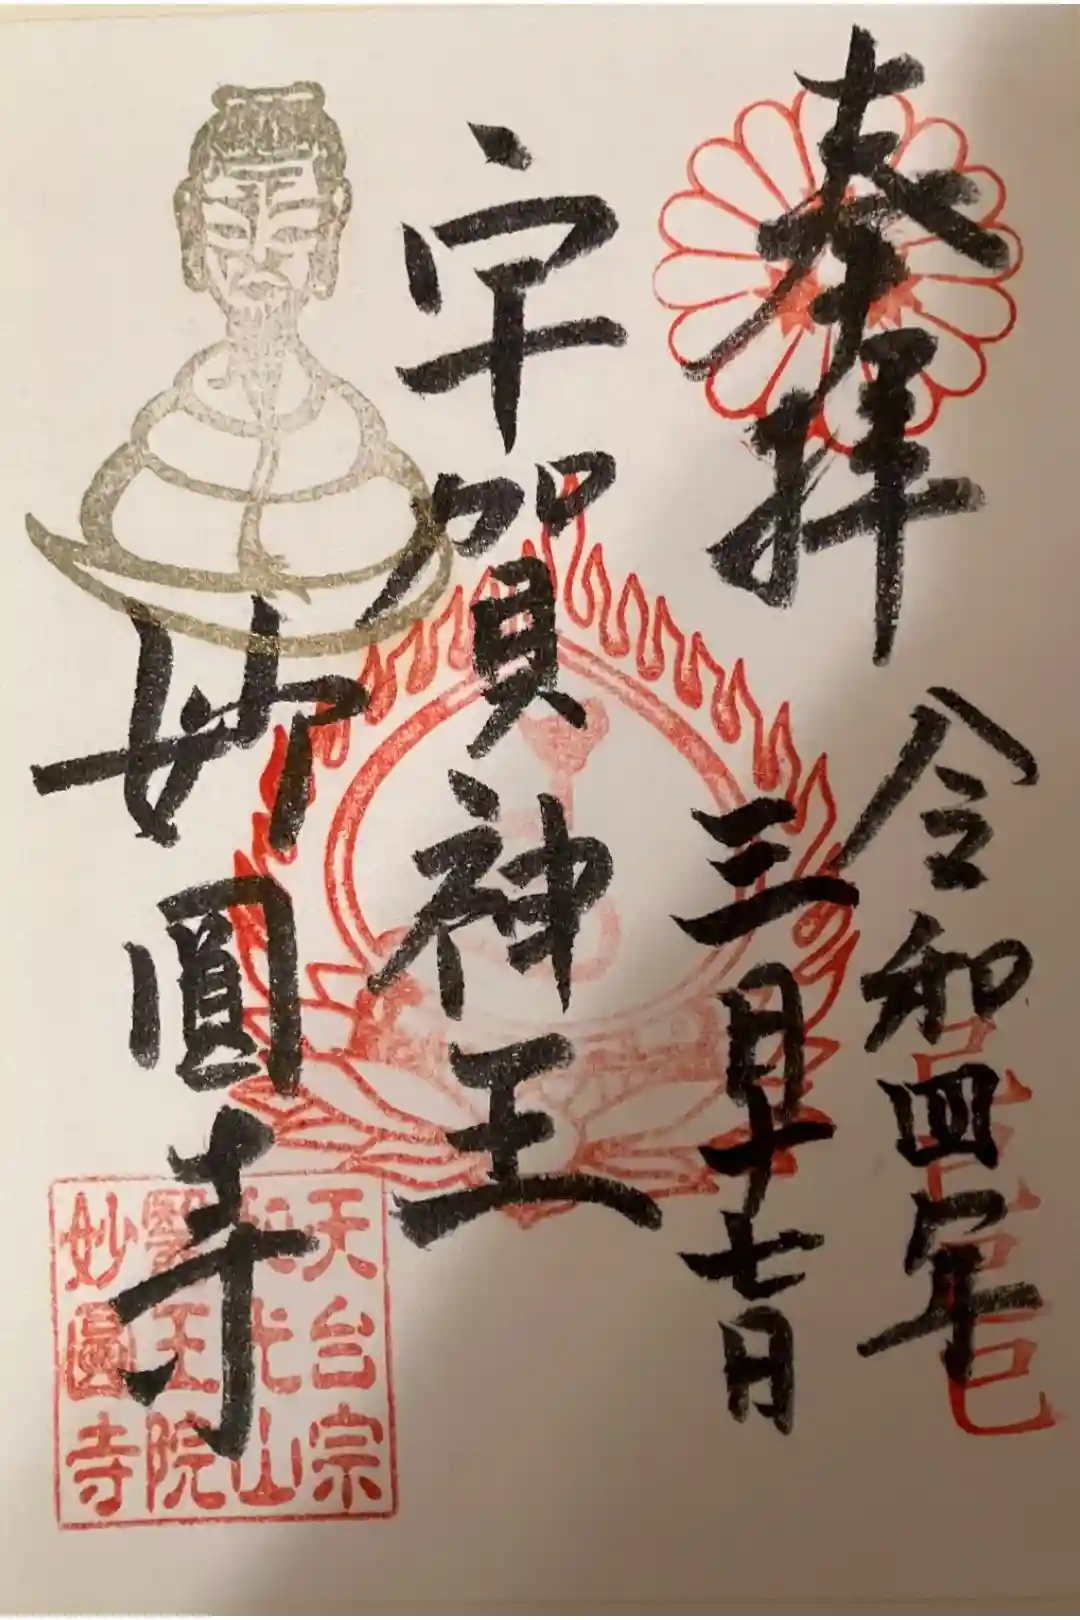 奉拝
令和四年
三月十七日
宇賀神王
妙圓寺
天台宗
和光山
醫王院
妙圓寺